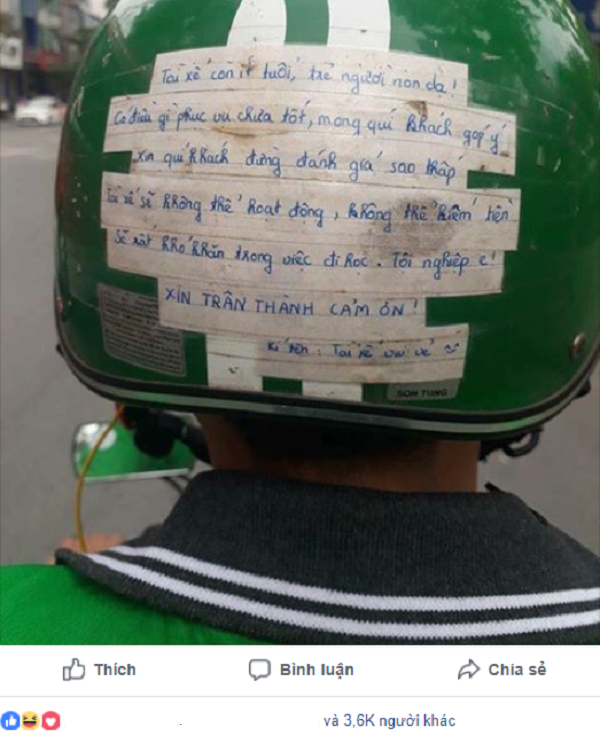 Tài xế còn ít tuổi, trẻ người non dạ!
Có điều gì phục vụ chưa tốt, mong quí khách góp ý
Xin quí khách đừng đánh giá sao thấp
Tài xế sẽ không thể hoạt động, không thể kiếm tiền
Sẽ rất khó khăn trong việc đi học. Tội nghiệp e!
XIN TRÂN THÀNH CẢM ƠN!
Kí tên: Tài xế vui vẻ
SON TUNG
Thích Bình luận Chia sẻ
và 3,6K người khác